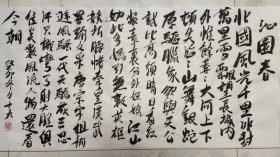 沁园春
北國風光千里冰封
万里雪飘望長城内
外惟餘莽莽大河上下
頓失滔滔山舞銀蛇
原驰蜡象欲與天公
試比高須晴日看红
装素裹分外妖娆江山
如此多嬌引無數英雄
競折腰惜秦皇漢武
略輸文采唐宗宋祖稍
遜風騷一代天驕成吉思
汗只識彎弓射大雕俱
往矣數風流人物還看
今朝 癸卯年